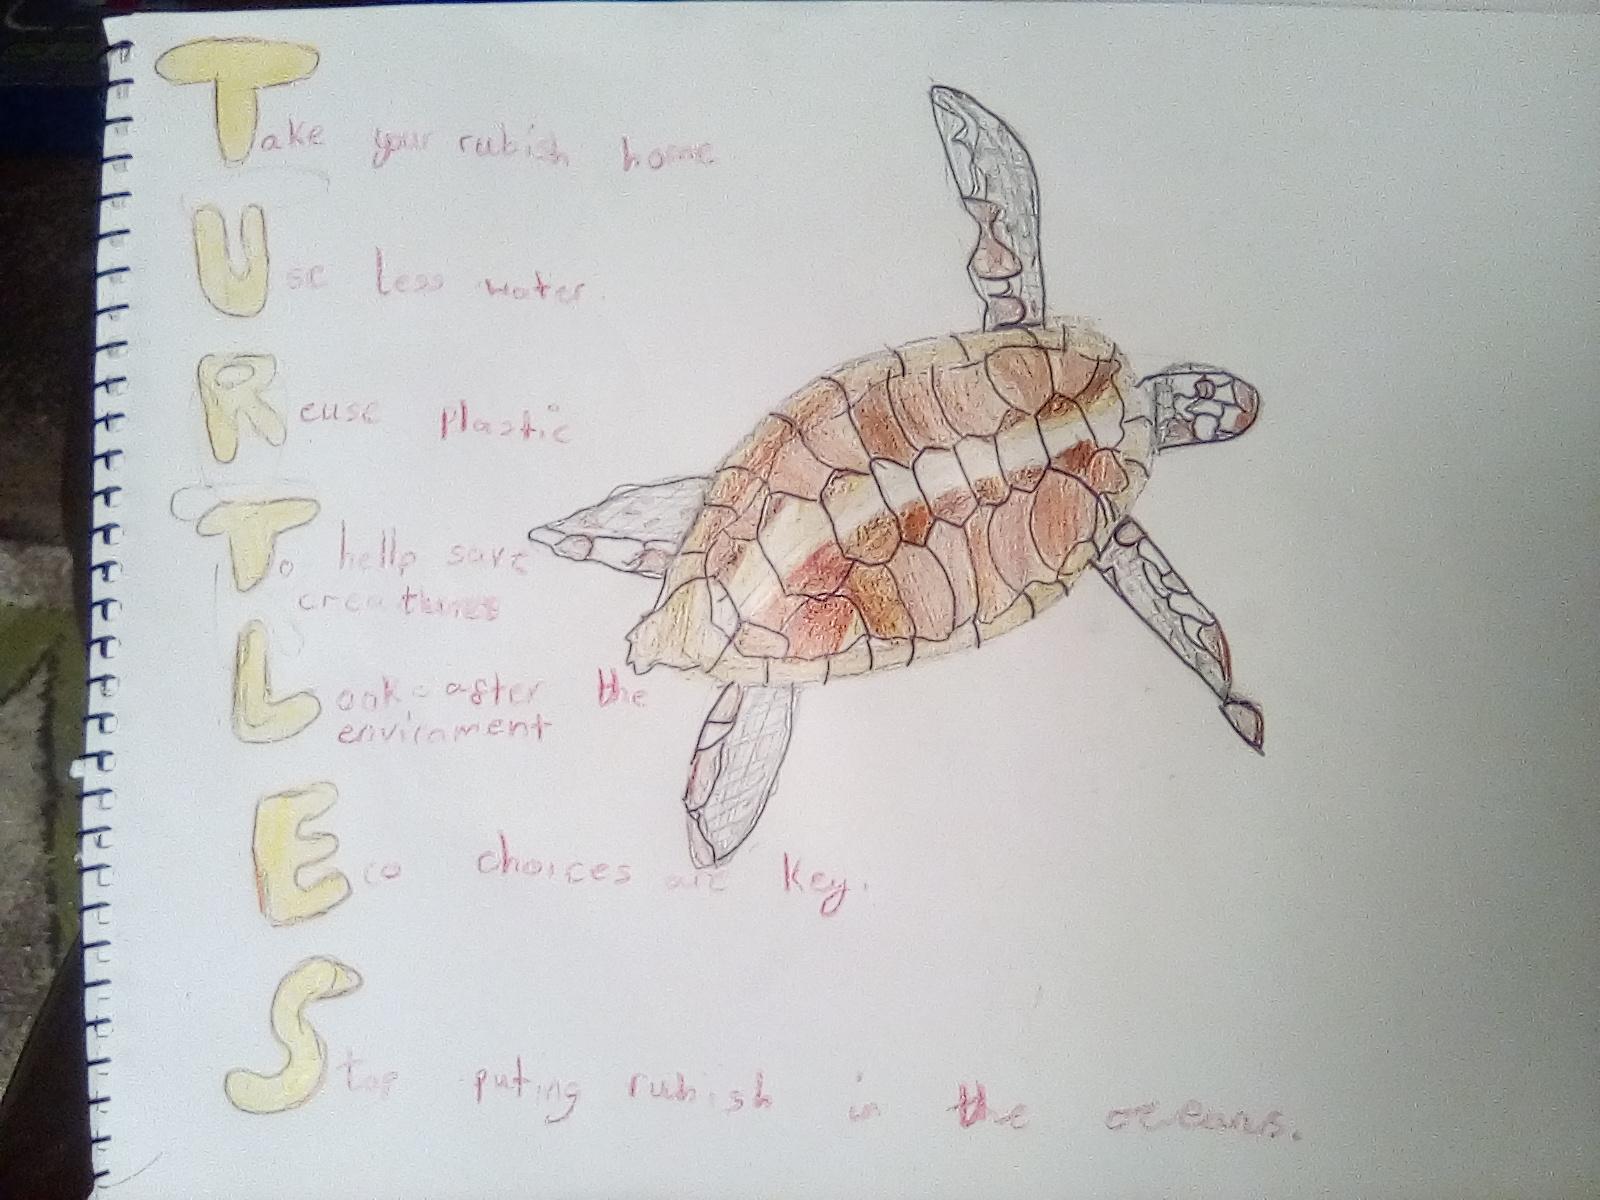 Take your rubish home
Use less water.
Reuse plastic
To help save
creatures
Look after the
envirnment
Eco choices are key.
Stop puting rubish in the oceans.